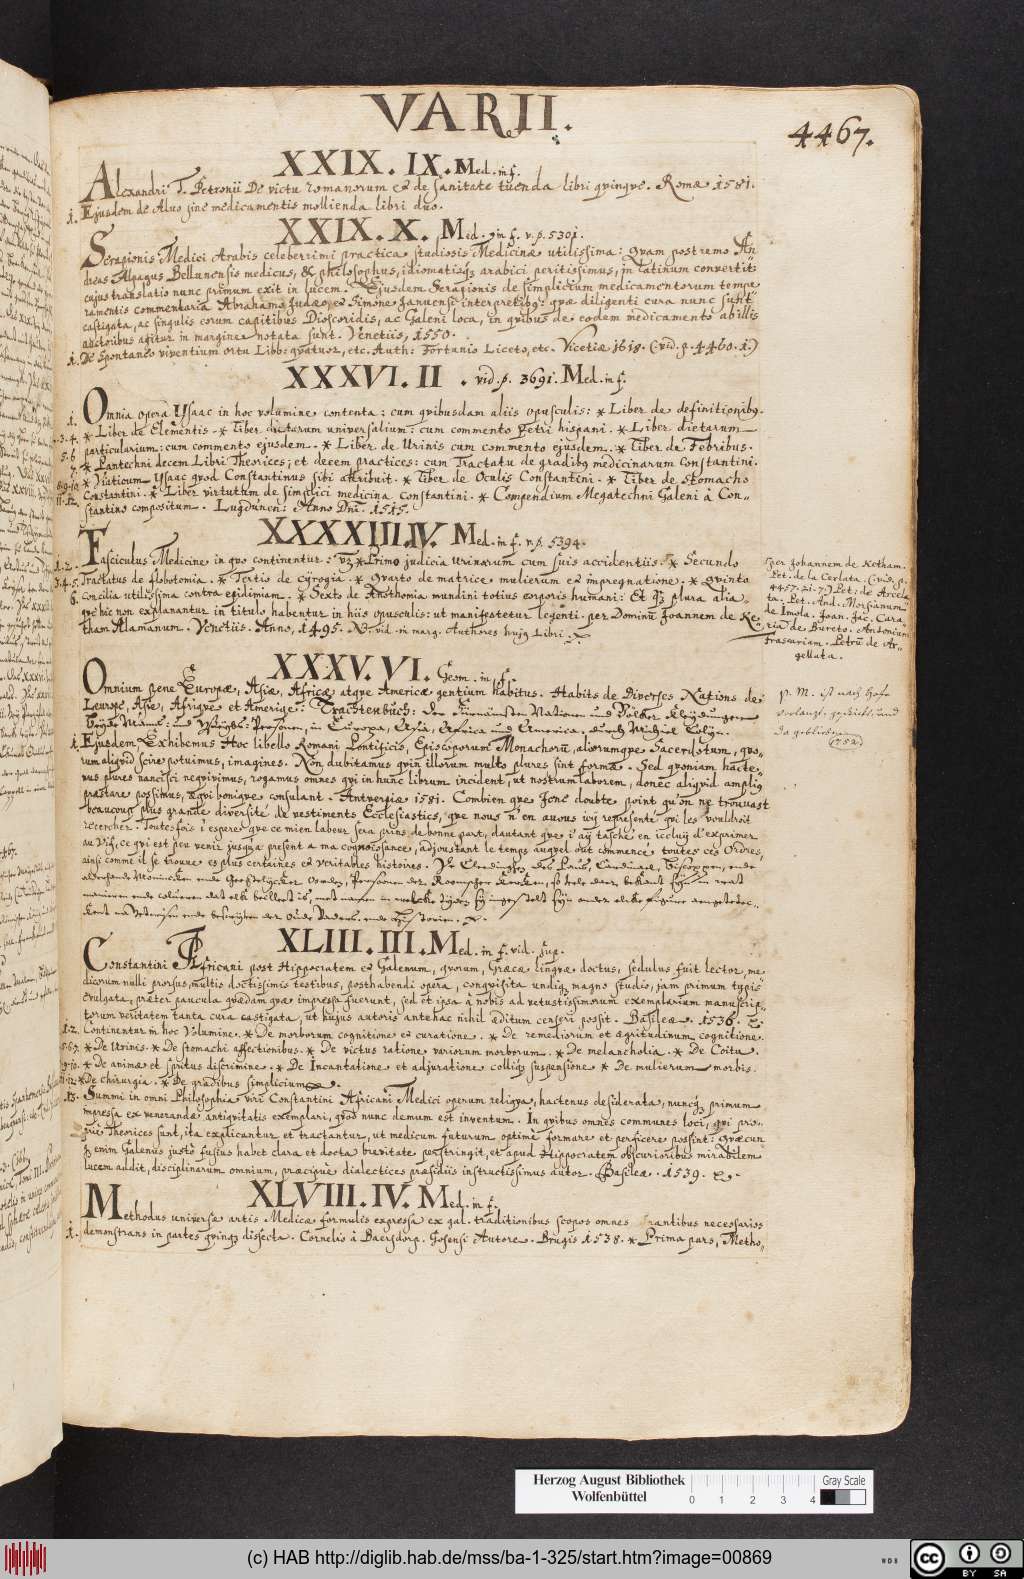 VARII.
4467.
XXIX. IX. Med. in f.
Alexandri T. Petronii De victu romanorum et de sanitate tuenda libri qvinqve. Romæ 1581.
1. Ejusdem de Alvo sine medicamentis mollienda libri duo.
XXIX. X. Med. in f. v. p. 5301.
Serapionis Medici Arabis celeberrimi practica studiosis Medicinæ utilissima: qvam postremo An-
dreas Alpagus Bellunensis medicus, & philosophus, idiomatisq; arabici peritissimus, in latinum convertit:
cujus translatio nunc primum exit in lucem. Ejusdem Serapionis de simplicium medicamentorum tempe
ramentis commentaria Abrahamo Judæo, et Simone Januensi interpretibq: qvæ diligenti cura nunc sunt
castigata, ac singulis eorum capitibus Dioscoridis, ac Galeni loca, in qvibus de eodem medicamento ab illis
auctoribus agitur in margine notata sunt. Venetiis, 1550.
1. De spontaneo viventium ortu Libb: qvatuor, etc. Auth: Fortunio Liceto, etc. Vicetiæ 1618. (vid. p. 4460. 1.)
XXXVI. II. vid. p. 3691. Med. in f.
1. Omnia opera Ysaac in hoc volumine contenta: cum qvibusdam aliis opusculis: * Liber de definitionibq.
2. 3. 4. * Liber de Elementis. * Liber dietarum universalium: cum commento Petri hispani. * Liber dietarum
5. 6. particularium: cum commento ejusdem. * Liber de Urinis cum commento ejusdem. * Liber de Febribus.
7. * Pantechni decem Libri Theorices, et decem practices: cum Tractatu de gradibq medicinarum Constantini.
8. 9. 10. * Viaticum Ysaac qvod Constantinus sibi attribuit. * Liber de Oculis Constantini. * Liber de Stomacho
11. 12. Constantini. * Liber virtutum de simplici medicina constantini. * Compendium Megatechni Galeni à Con-
stantino compositum. Lugdunen: Anno Dni. 1515.
XXXXIII. IV. Med. in f. v. p. 5394.
1. 2. Fasciculus Medicine in qvo continentur: vz * Primo judicia urinarum cum suis accidentiis. * Secundo
3. 4. 5. Tractatus de flobotomia. * Tertio de cyrogia. * Qvarto de matrice mulierum et impregnatione. * Qvinto
6. Concilia utilissima contra epidimiam. * Sexto de Ansthomia mundini totius corporis humani: Et q; plura alia
qve hic non explanantur in titulo habentur in hiis opusculis: ut manifestetur legenti. per Dominū Joannem de Ke-
tham Alamanum. Venetiis. Anno, 1495. NB. vid. in marg. Authores hujq Libri.
per Johannem de Ketham.
Pet. de la Cerlata. (vid. p.
4457. 21. 7.) Pet: de Arcela
ta. Pet. And. Morsianum
de Imola. Joan. Jac. Cara
ria de Bureto. Antonium
Frascariam. Petrū de Ar-
gellata.
XXXV. VI. Geom. in f.
Omnium pene Europæ, Asiæ, Africæ atqve Americæ gentium habitus. Habits de Diverses Nations de
Leurope, Asie, Afriqve et Amerige: Trachtenbuch: der Fürnämsten Nationen und Völcker Kleydungen
beyde Manns: und Weybs: Personen, in Europa, Asia, Africa und America. durch Michiel Colyn.
1. Ejusdem Exhibemus Hoc libello Romani Pontificis, Episcoporum Monachorū, aliorumqve Sacerdotum, qvo-
rum aliqvid scire potuimus, imagines. Non dubitamus qvin illorum multo plures sint formæ. Sed qvoniam hacte-
nus plures nancisci neqvivimus, rogamus omnes qvi in hunc librum incident, ut nostrum laborem, donec aliqvid ampliq
præstare possimus, æqvi boniqve consulant. Antverpiæ 1581. Combien qve Jene doubte point qu'on ne trouvast
beaucoug plus grande diversité de vestiments Ecclesiastics, qve nous n'en avous icy representé qvi les vouldroit
recercher. Toutesfois i'espere qve ce mien labeur sera prins de bonne part, dautant qve i'ay tasché en iceluy d'exprimer
au Vif, ce qvi est peu venir jusqva present a ma cognoissance, adjoustant le temps auqvel out commencé toutes ces Ordres,
ainsi comme il se trouue es plus certaines et veritables histoires.
p. M. ist nach Hofe
verlangt, geschickt, und
da geblieben
1752.
XLIII. III. Med. in f. vid. sup.
Constantini Africani post Hippocratem et Galenum, qvorum, Græcæ lingvæ doctus, sedulus fuit lector, me
dicorum nulli prorsus, multis doctissimis testibus, posthabendi opera, conqvisita undiq; magno studio, jam primum typis
evulgata, præter paucula qvædam qvæ impressa fuerunt, sed et ipsa à nobis ad vetustissimorum exemplarium manuscrip-
torum veritatem tanta cura castigata, ut hujus autoris antehac nihil æditum censeri possit. Basileæ. 1536.
1. 2. Continentur in hoc Volumine. * De morborum cognitione et curatione. * De remediorum et ægritudinum cognitione.
5. 6. 7. * De Urinis. * De stomachi affectionibus. * De victus ratione variorum morborum. * De melancholia. * De Coitu.
9. 10. * De animæ et spiritus discrimine. * De Incantatione et adjuratione colliq; suspensione * De mulierum morbis.
11. 12. * De chirurgia. * De gradibus simplicium.
13. Summi in omni Philosophia viri Constantini Africani Medici operum reliqva, hactenus desiderata, nuncq; primum
impressa ex venerandæ antiqvitatis exemplari, qvod nunc demum est inventum. In qvibus omnes communes loci, qvi pro-
prie Theorices sunt, ita explicantur et tractantur, ut medicum futurum optimè formare et perficere possint: Qvæcun
q; enim Galenus justò fusius habet clara et docta brevitate perstringit, et apud Hippocratem obscurioribus mirabilem
lucem addit, disciplinarum omnium, præcipuè dialectices præsidiis instructissimus autor. Basileæ. 1539.
XLVIII. IV. Med. in f.
Methodus universæ artis Medicæ formulis expressa ex gal. traditionibus scopos omnes necessarios
1. demonstrans in partes qvinq; dissecta. Cornelio à Baersdorp. Gosensi Autore. Brugis 1538. * Prima pars, Metho-
Herzog August Bibliothek
Wolfenbüttel
Gray Scale
0 1 2 3 4
(c) HAB http://diglib.hab.de/mss/ba-1-325/start.htm?image=00869
WDB
cc BY SA